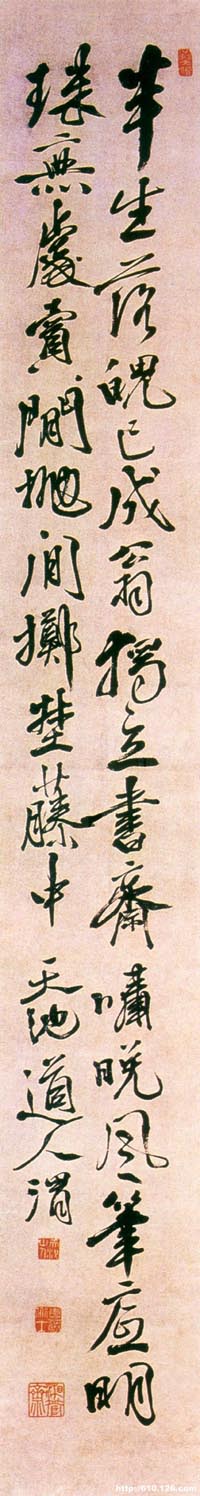 半生落魄已成翁獨立書齋嘯晚風筆底明
珠無處賣閒拋閒擲埜藤中 天池道人渭
http://610.126.com